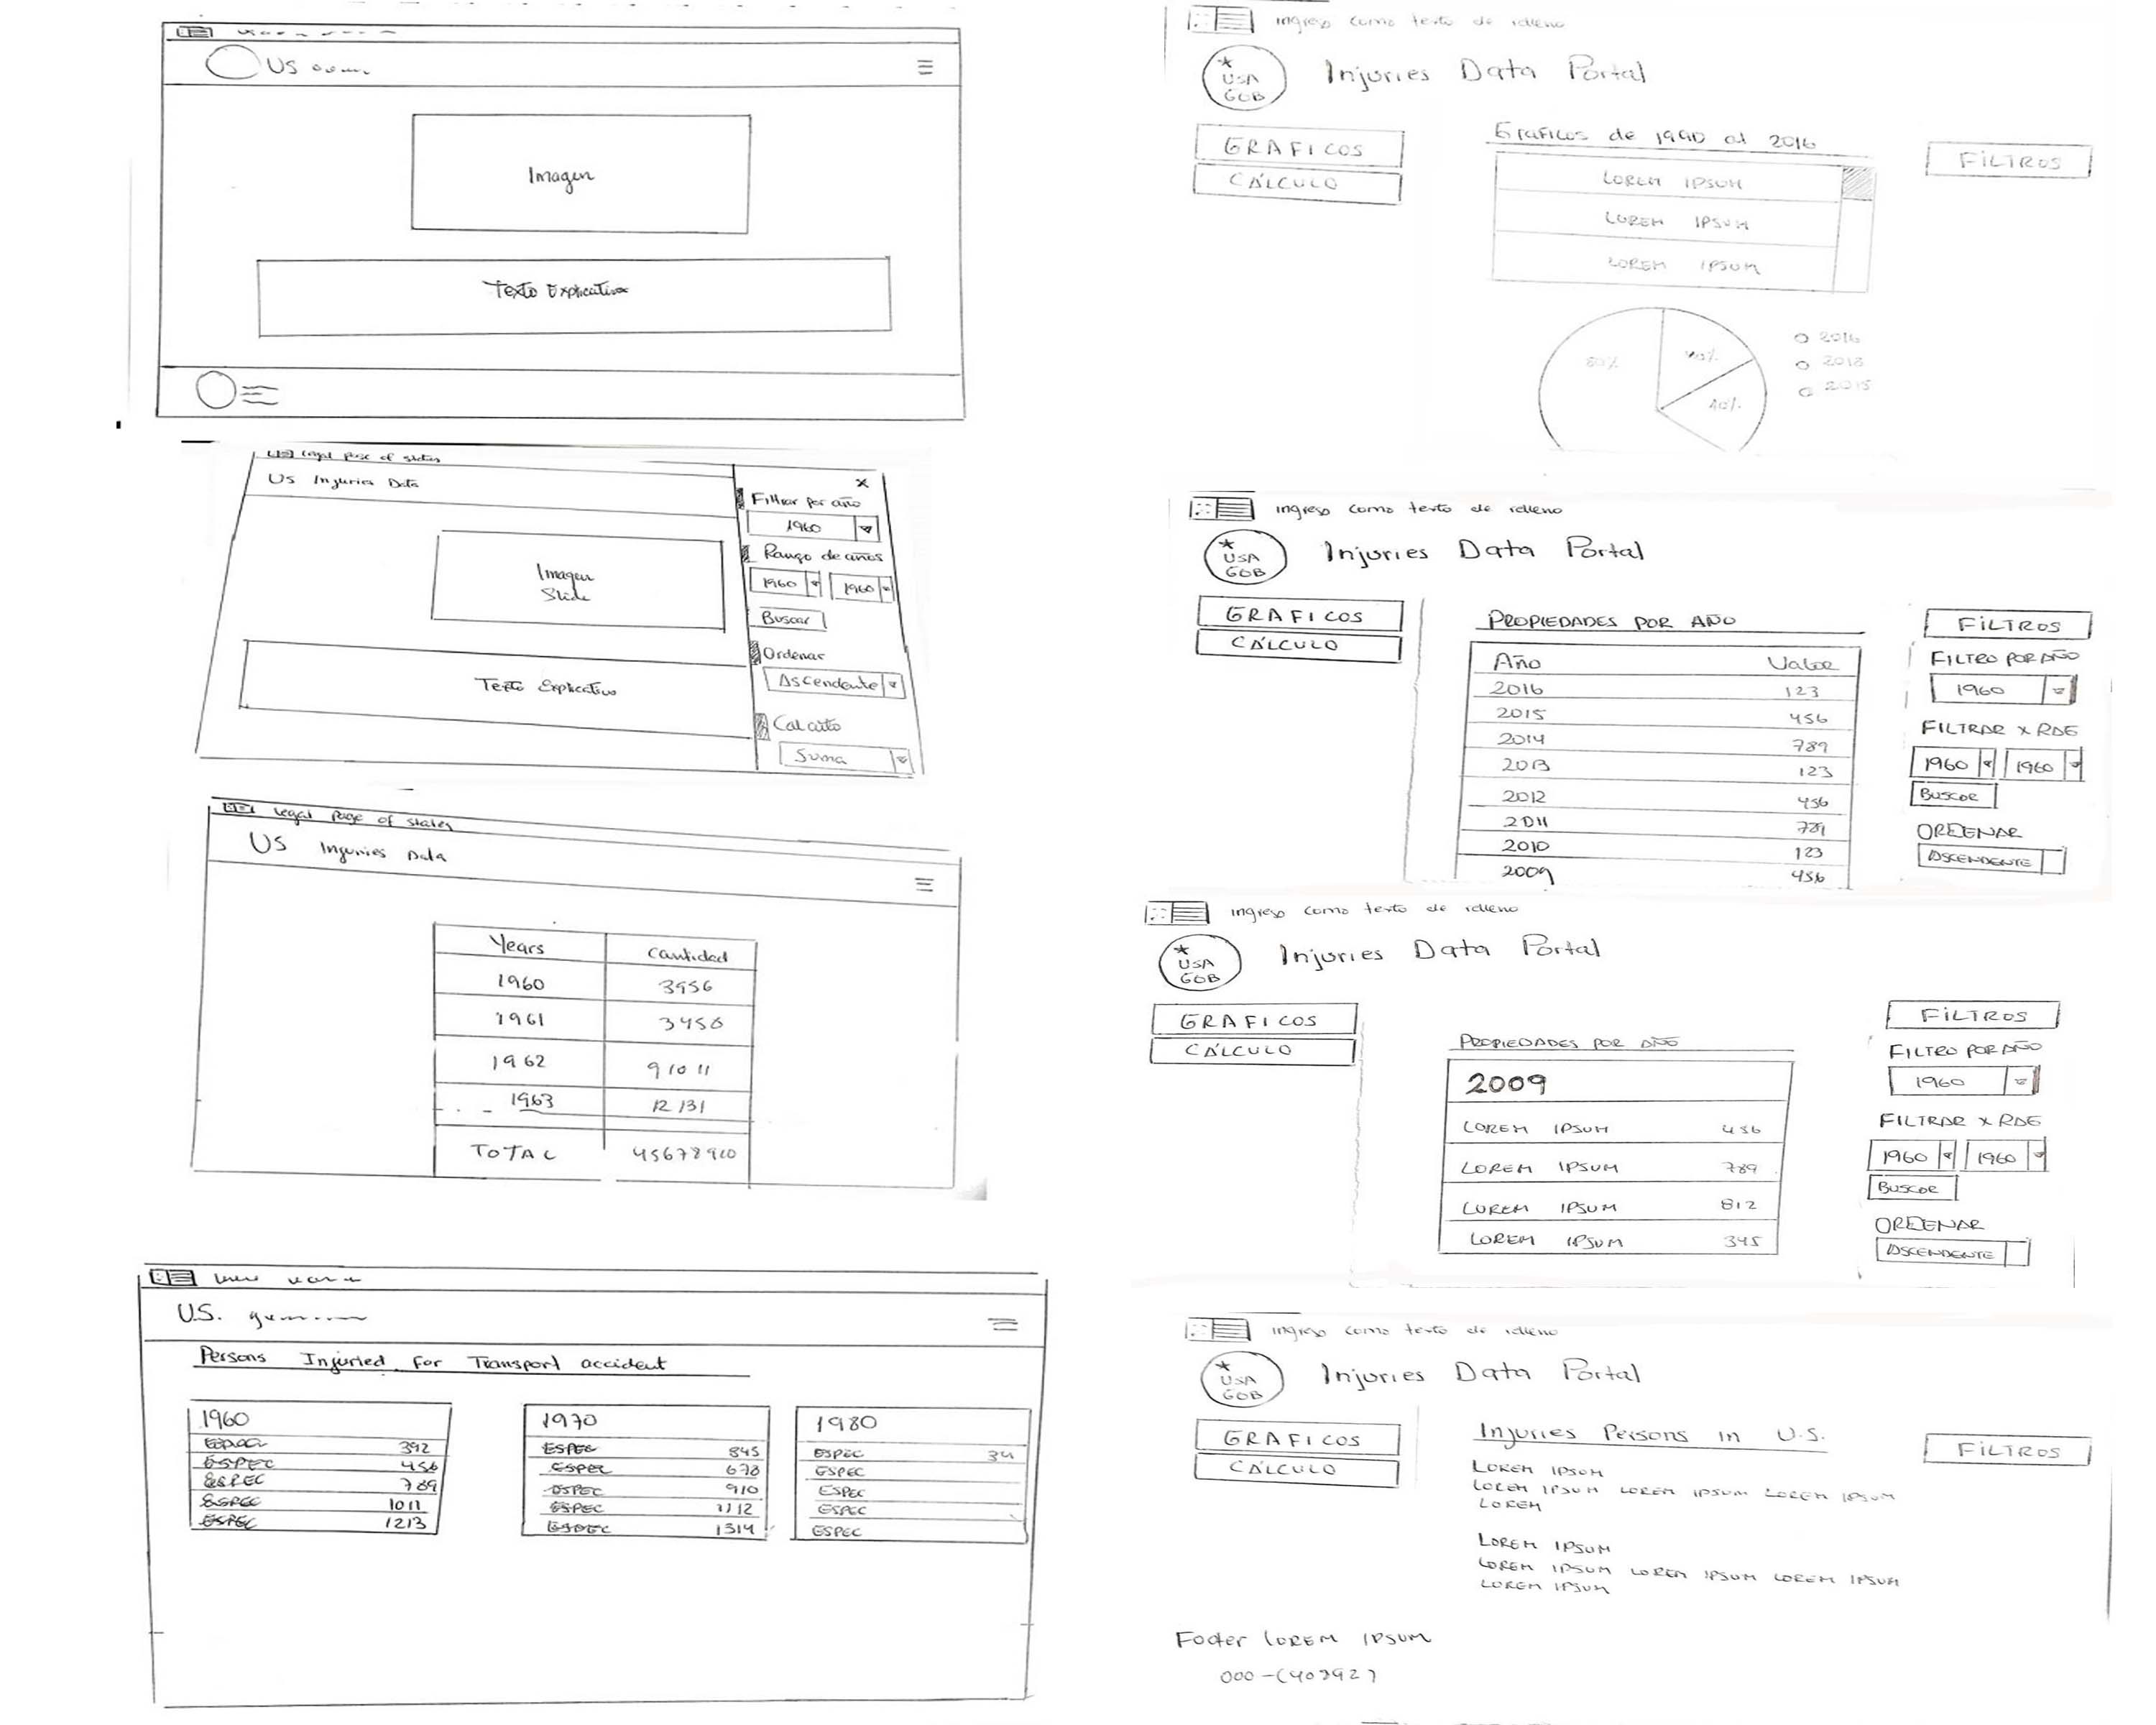 US
Imagen
Texto Explicativo
Legal Page of states
US Injuries Data
Filtrar por año
1960
Rango de años
1960 1960
Buscar
Imagen
Slide
Ordenar
Ascendente
Texto Explicativo
Calculo
Suma
Legal Page of states
US Injuries Data
Years Cantidad
1960 3956
1961 3456
1962 91011
1963 12131
TOTAL 45678910
U.S.
Persons Injuried for Transport accident
1960
392
ESPEC 456
ESPEC 789
ESPEC 1011
ESPEC 1213
1970
ESPEC 845
ESPEC 678
ESPEC 910
ESPEC 1112
ESPEC 1314
1980
ESPEC 34
ESPEC
ESPEC
ESPEC
ESPEC
Ingreso como texto de relleno
USA
GOB
Injuries Data Portal
GRAFICOS
CÁLCULO
Graficos de 1990 al 2016
LOREM IPSUM
LOREM IPSUM
LOREM IPSUM
FILTROS
2016
2015
Ingreso como texto de relleno
USA
GOB
Injuries Data Portal
GRAFICOS
CÁLCULO
PROPIEDADES POR AÑO
Año Valor
2016 123
2015 456
2014 789
2013 123
2012 456
2011 789
2010 123
2009 456
FILTROS
FILTRO POR AÑO
1960
FILTRAR X
1960 1960
BUSCAR
ORDENAR
ASCENDENTE
Ingreso como texto de relleno
USA
GOB
Injuries Data Portal
GRAFICOS
CÁLCULO
PROPIEDADES POR AÑO
2009
LOREM IPSUM 456
LOREM IPSUM 789
LOREM IPSUM 812
LOREM IPSUM 345
FILTROS
FILTRO POR AÑO
1960
FILTRAR X
1960 1960
BUSCAR
ORDENAR
ASCENDENTE
Ingreso como texto de relleno
USA
GOB
Injuries Data Portal
GRAFICOS
CÁLCULO
Injuries Persons in U.S.
LOREM IPSUM
LOREM IPSUM LOREM IPSUM LOREM IPSUM
LOREM
LOREM IPSUM
LOREM IPSUM LOREM IPSUM LOREM IPSUM
LOREM IPSUM
FILTROS
Footer LOREM IPSUM